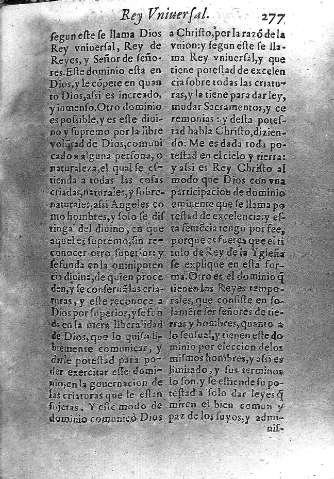 Rey Vniuersal. 277
segun este se llama Dios
Rey vniuersal, Rey de
Reyes, y Señor de seño-
res. Este dominio está en
Dios, y le cõpete en quan
to Dios, assi es increado,
y inmenso. Otro dominio
es possible, y es este diui-
no y supremo por la libre
volũtad de Dios, comuni
cado a alguna persona, o
naturaleza, el qual se es-
tienda a todas las cosas
criadas, naturales, y sobre
naturales, assi Angeles co
mo hombres, y solo se dis
tinga del diuino, en que
aquel es supremo, sin re-
conocer otro superior: y
se funda en la omnipoten
cia diuina, de quien proce
den, y se conseruã las cria-
turas, y este reconoce a
Dios por superior, y se fun
da en la mera liberalidad
de Dios, que lo quiso li-
bremente comunicar, y
darle potestad para po-
der exercitar este domi-
nio, en la gouernacion de
las criaturas que le estan
sujetas. Y este modo de
dominio comunicò Dios
a Christo, por la razõ de la
vnion: y segun este se lla-
ma Rey vniuersal, y que
tiene potestad de excelen
cia sobre todas las criatu
ras, y la tiene para dar ley,
mudar Sacramentos, y ce
remonias: y desta potes-
tad habla Christo, dizien-
do: Me es dada toda po-
testad en el cielo y tierra:
y assi es Rey Christo al
modo que Dios con vna
participacion de dominio
eminente que se llama po
testad de excelencia: y es-
ta sentencia tengo por fee,
porque es fuerça que el ti
tulo de Rey de la Iglesia
se explique en esta for-
ma. Otro es el dominio q̃
tienen las Reyes tempo-
rales, que consiste en so-
lamẽte ser señores de tie-
rras y hombres, quanto a
lo sensual, y tienen este do
minio por eleccion de los
mismos hombres, y assi es
limitado, y sus terminos
lo son, y se estiende su po-
testad a solo dar leyes q̃
miren el bien comun y
paz de los suyos, y admi-
nis-